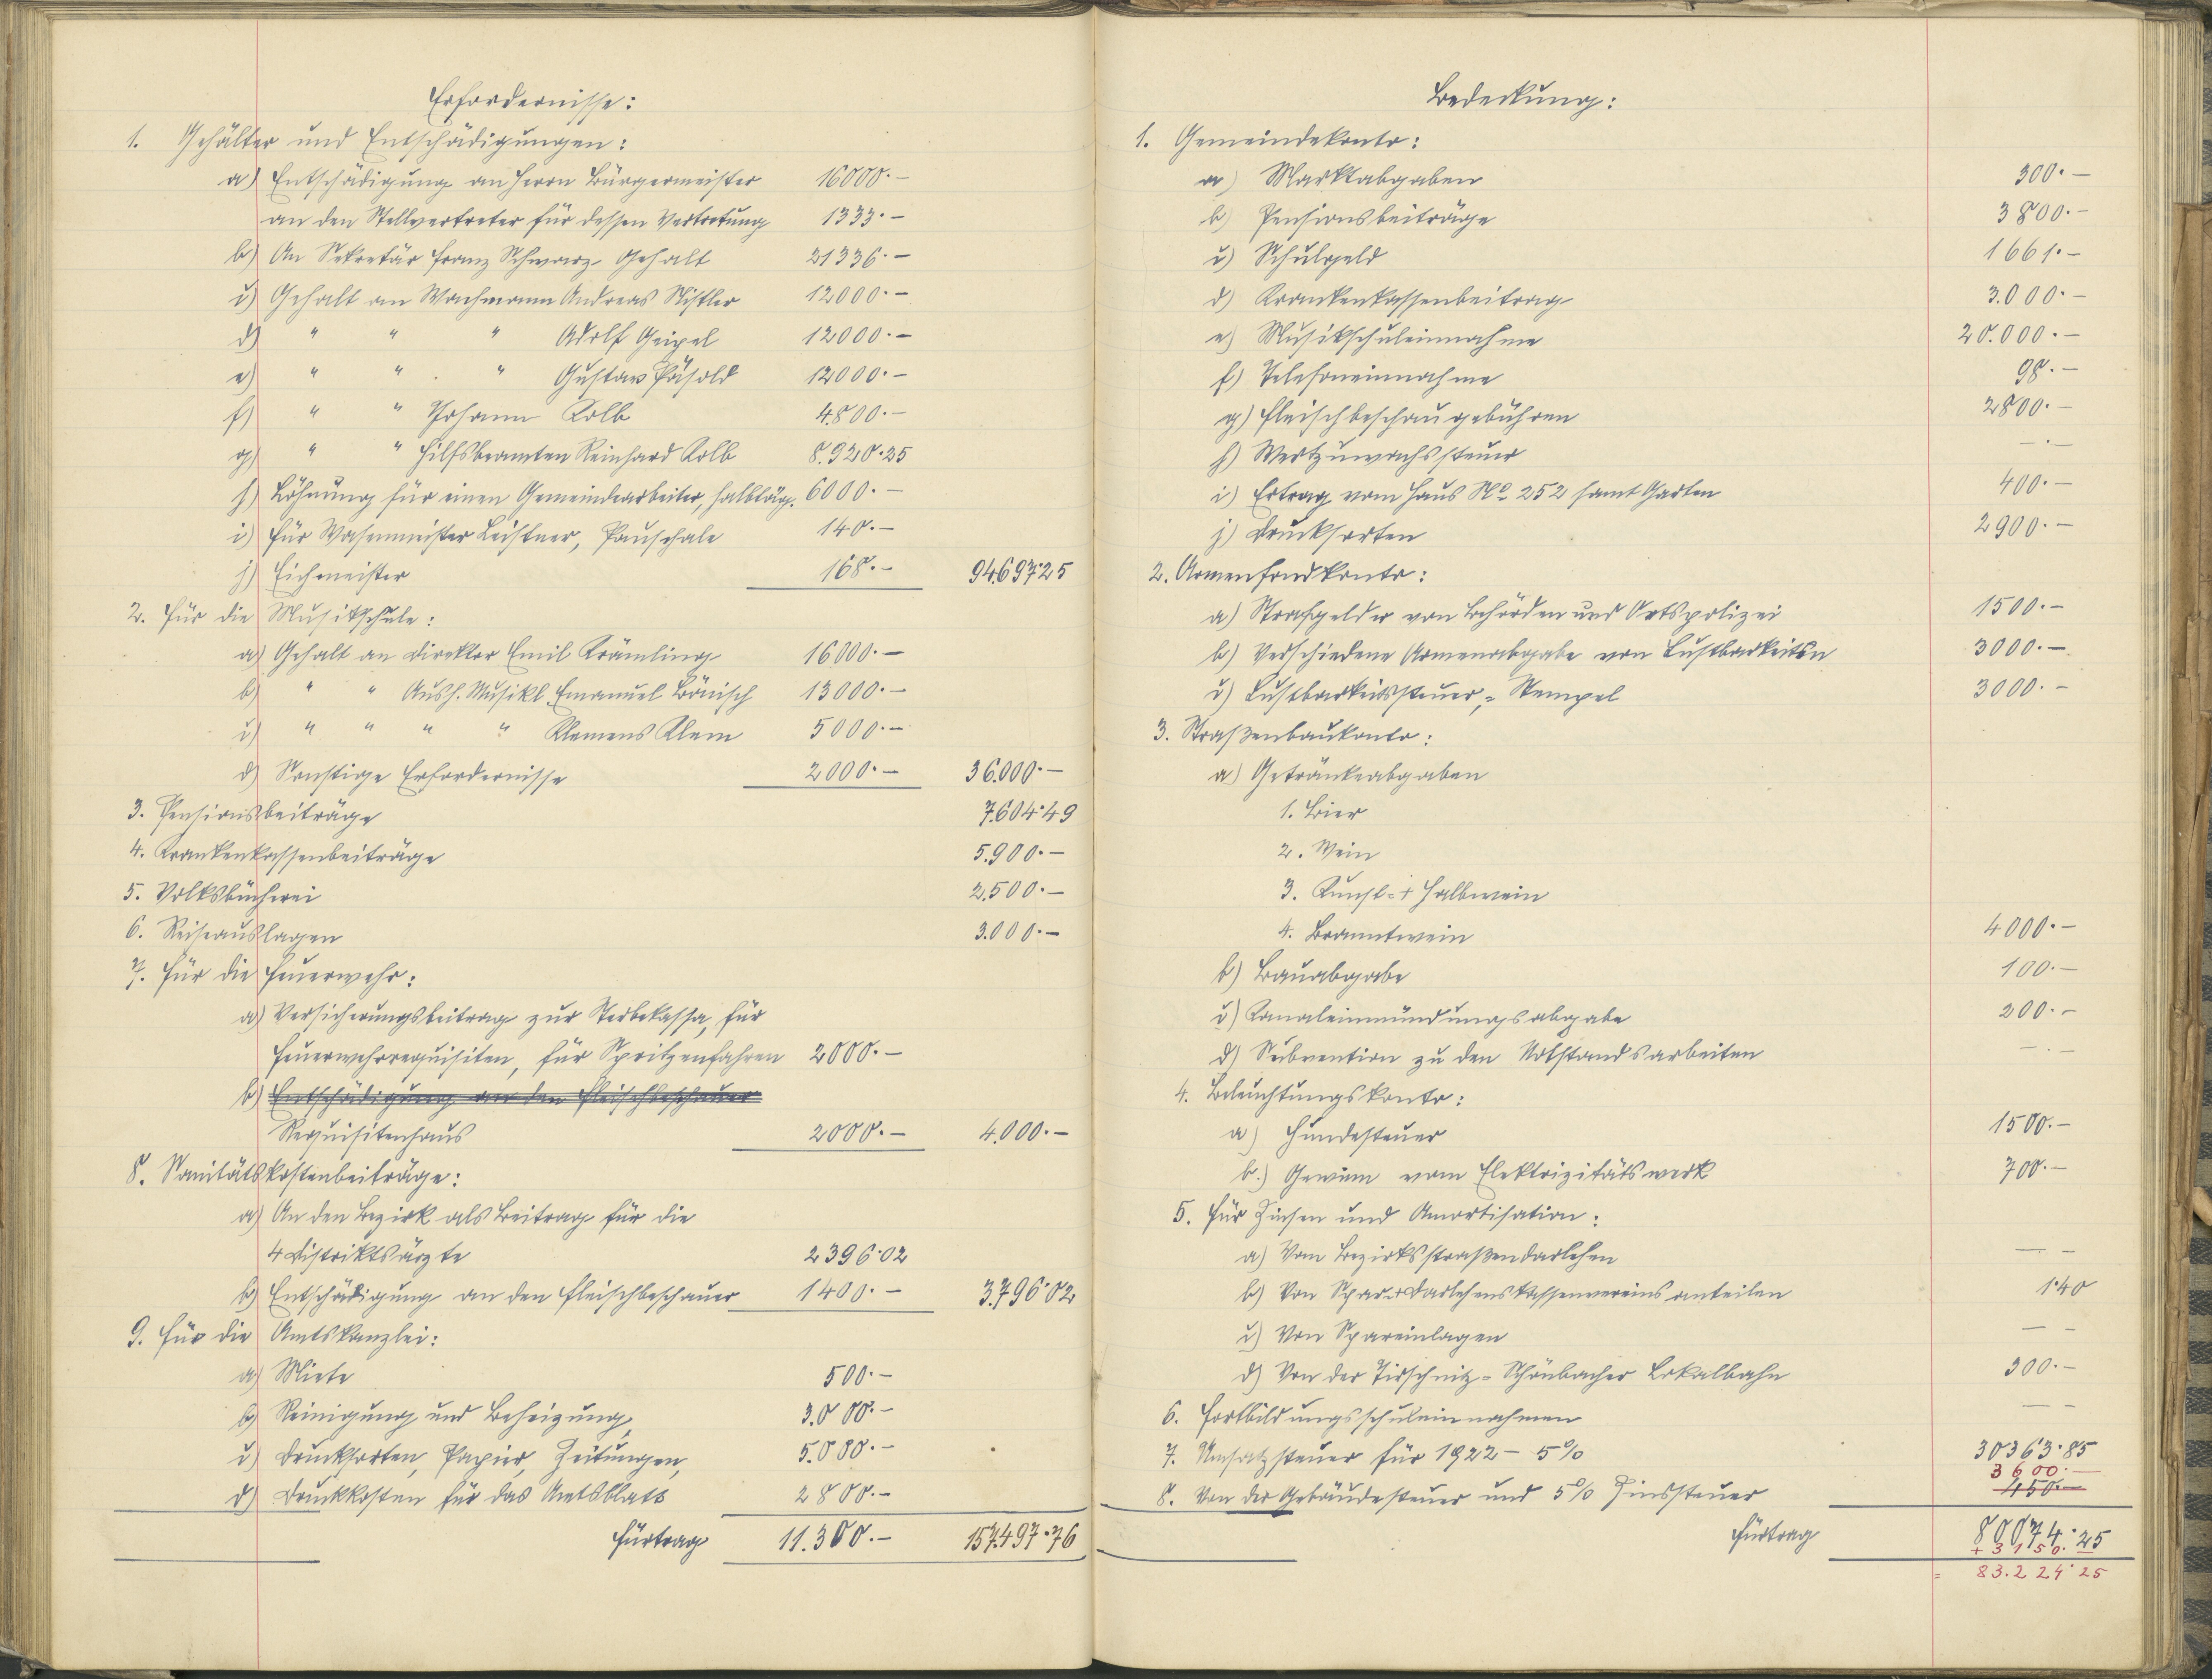 Erfordernisse:
1. Gehälter und Entschädigungen:
a) Entschädigung an Herrn Bürgermeister 16000.-
an den Stellvertreter für dessen Vertretung 1333.-
b) An Sekretär Franz Schwarz Gehalt 21336.-
c) Gehalt an Wachmann Andreas Nistler 12000.-
d) " " " Adolf Geipel 12000.-
e) " " " Gustav Päsold 12000.-
f) " " Johann Kolb 4.800.-
g) " " Hilfsbeamten Reinhard Kolb 8.920.25
h) Löhnung für einen Gemeindearbeiter, halbtäg. 6000.-
i) Für Wasenmeister Leistner, Pauschale 140.-
j) Eichmeister 168.- 94.697.25
2. Für die Musikschule:
a) Gehalt an Direktor Emil Krämling 16000.-
b) " " Aush. Musikl. Emanuel Bönisch 13000.-
c) " " " " Klemens Klem 5000.-
d) Sonstige Erfordernisse 2000.- 36.000.-
3. Pensionsbeiträge 7.604.49
4. Krankenkassenbeiträge 5.900.-
5. Volksbücherei 2.500.-
6. Reiseauslagen 3.000.-
7. Für die Feuerwehr:
a) Versicherungsbeitrag zur Sterbekassa, für
Feuerwehrrequisiten, für Spritzenfahren 2000.-
b) Entschädigung an den Fleischbeschauer
Requisitenhaus 2000.- 4.000.-
8. Sanitätskostenbeiträge:
a) An den Bezirk als Beitrag für die
4 Distriktsärzte 2396.02
b) Entschädigung an den Fleischbeschauer 1400.- 3.796.02
9. Für die Amtskanzlei:
a) Miete 500.-
b) Reinigung und Beheizung, 3.000.-
c) Drucksorten, Papier, Zeitungen, 5.000.-
d) Druckkosten für das Amtsblatt 2800.-
Fürtrag 11.300.- 157.497.76
Bedeckung:
1. Gemeindekonto:
a) Marktabgaben 300.-
b) Pensionsbeiträge 3800.-
c) Schulgeld 1661.-
d) Krankenkassenbeitrag 3.000.-
e) Musikschuleinnahme 20.000.-
f) Telefoneinnahme 98.-
g) Fleischbeschaugebühren 2800.-
h) Wertzuwachssteuer -.-
i) Ertrag vom Haus No 252 samt Garten 400.-
j) Drucksorten 2900.-
2. Armenfondkonto:
a) Strafgelder von Behörden und Ortspolizei 1500.-
b) Verschiedene Armenabgabe von Lustbarkeiten 3000.-
c) Lustbarkeitssteuer,= Stempel 3000.-
3. Straßenbaukonto:
a) Getränkeabgaben
1. Bier
2. Wein
3. Kunst=+ Halbwein
4. Branntwein 4000.-
b) Bauabgabe 100.-
c) Kanaleinmündungsabgabe 200.-
d) Subvention zu den Notstandsarbeiten -.-
4. Beleuchtungskonto:
a) Hundesteuer 1500.-
b.) Gewinn vom Elektrizitätswerk 700.-
5. Für Zinsen und Amortisation:
a) Vom Bezirksstraßendarlehen - -
b) Von Spar-+Darlehenskassenvereinsanteilen 1.40
c) Von Spareinlagen - -
d) Von der Tirschnitz=Schönbacher Lokalbahn 300.-
6. Fortbildungsschuleinnahmen - -
7. Umsatzsteuer für 1922 - 5% 30363.85
3600.-
8. Von der Gebäudesteuer und 5% Zinssteuer 450.-
Fürtrag 80074.25
+ 3150.
= 83.224.25